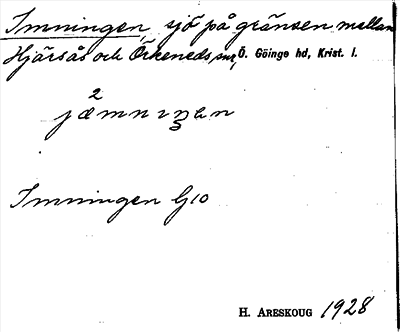 Immningen, sjö på gränsen mellan
Hjärsås och Örkeneds snr, Ö. Göinge hd, Krist. l.
2
Immningen G10
H. ARESKOUG 1928